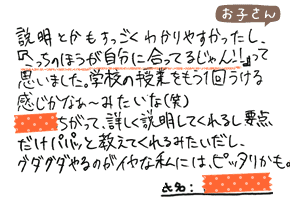 お子さん
説明とかもすっごくわかりやすかったし、
『こっちのほうが自分に合ってるじゃん!!』って
思いました。学校の授業をもう1回うける
感じかなぁ〜みたいな(笑)
ちがって、詳しく説明してくれるし要点
だけパパッと教えてくれるみたいだし、
グダグダやるのがイヤな私には、ピッタリかも。
さん: